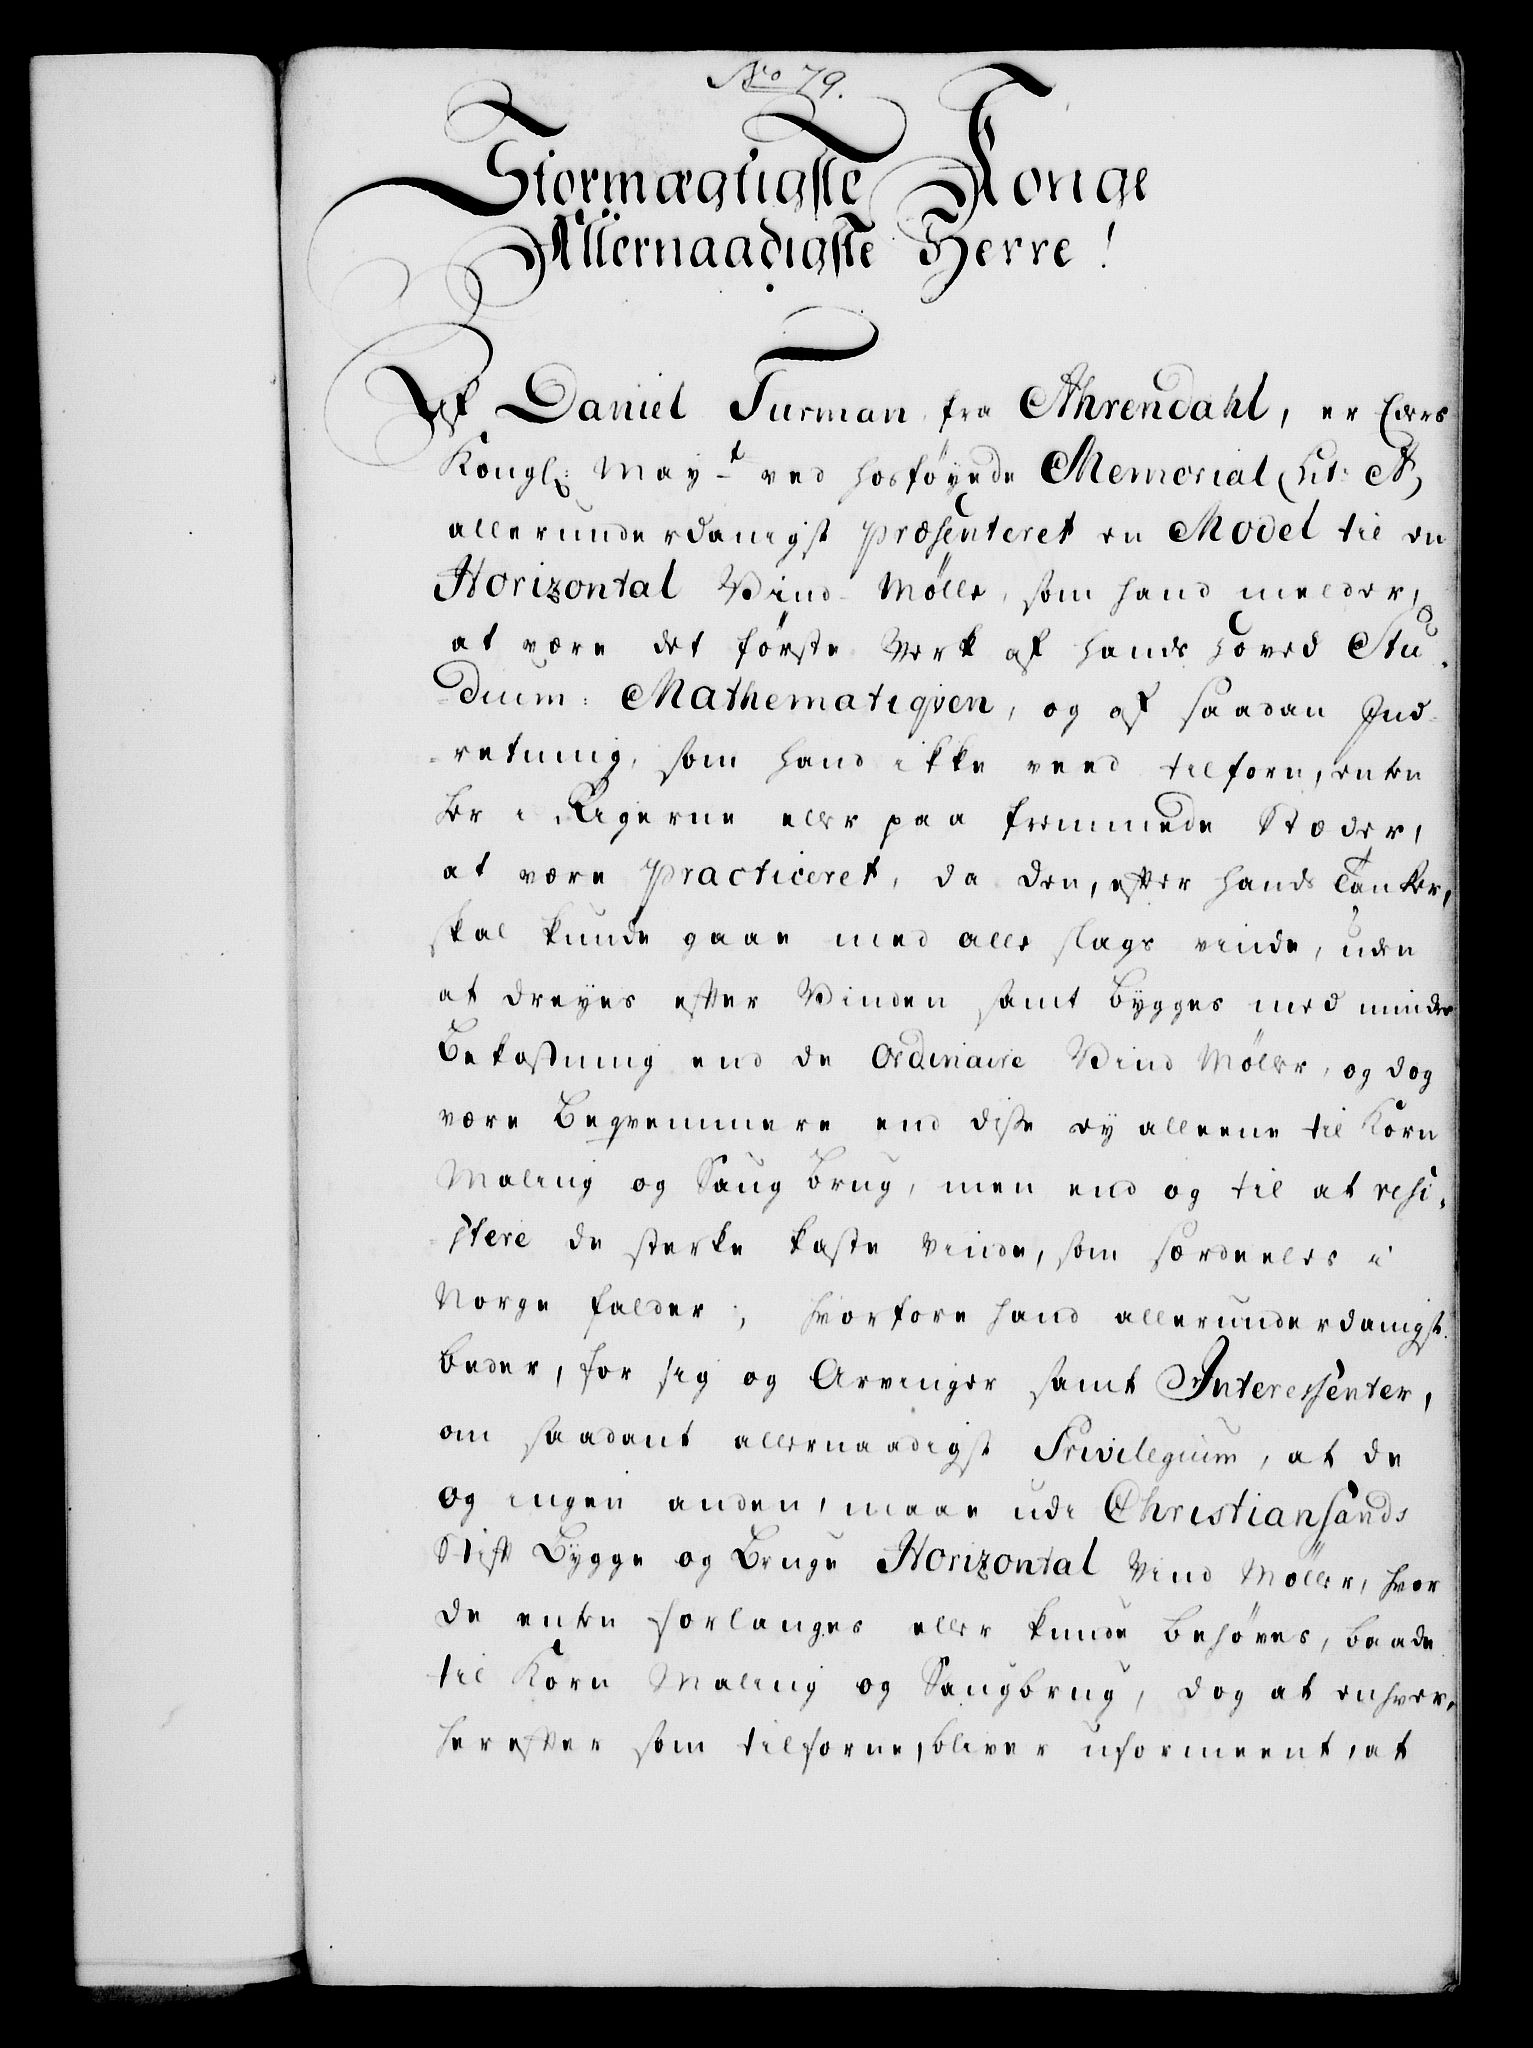 No 79.
Stormægtigste Konge
Allernaadigste Herre!
Af Daniel Tusman fra Ahrendahl, er Eders
Kongl: May-t ved hosføyede Memorial Lit: A,
allerunderdanigst præsenteret en Model til en
Horizontal Vind-Mølle, som hand melder,
at være det første Verk af hands hoved Stu-
dium: Mathematiqven, og af saadan Ind-
-retning, som hand ikke veed tilforn, enten
her i Rigerne eller paa fremmede Stæder,
at være practiceret, da den, efter hands Tanker,
skal kunde gaae med alle slags vinde, uden
at dreyes efter Vinden samt bygges med mindre
Bekostning end de Ordinaire Vind Møller, og dog
være Beqvemmere end disse ey alleene til Korn
Maling og Saug Brug, men end og til at resi-
-stere de sterke kaste Vinde, som særdeeles i
Norge falder; hvorfore hand allerunderdanigst
beder, for sig og Arvinger samt Interessenter,
om saadant allernaadigst Privilegium, at de
og ingen anden, maae udi Christiansands
Stift Bygge og Bruge Horizontal Vind Møller, hvor
de enten forlanges eller kunde behøves, baade
til Korn Maling og Saugbrug, dog at enhver,
herefter som tilforne, bliver uformeent, at